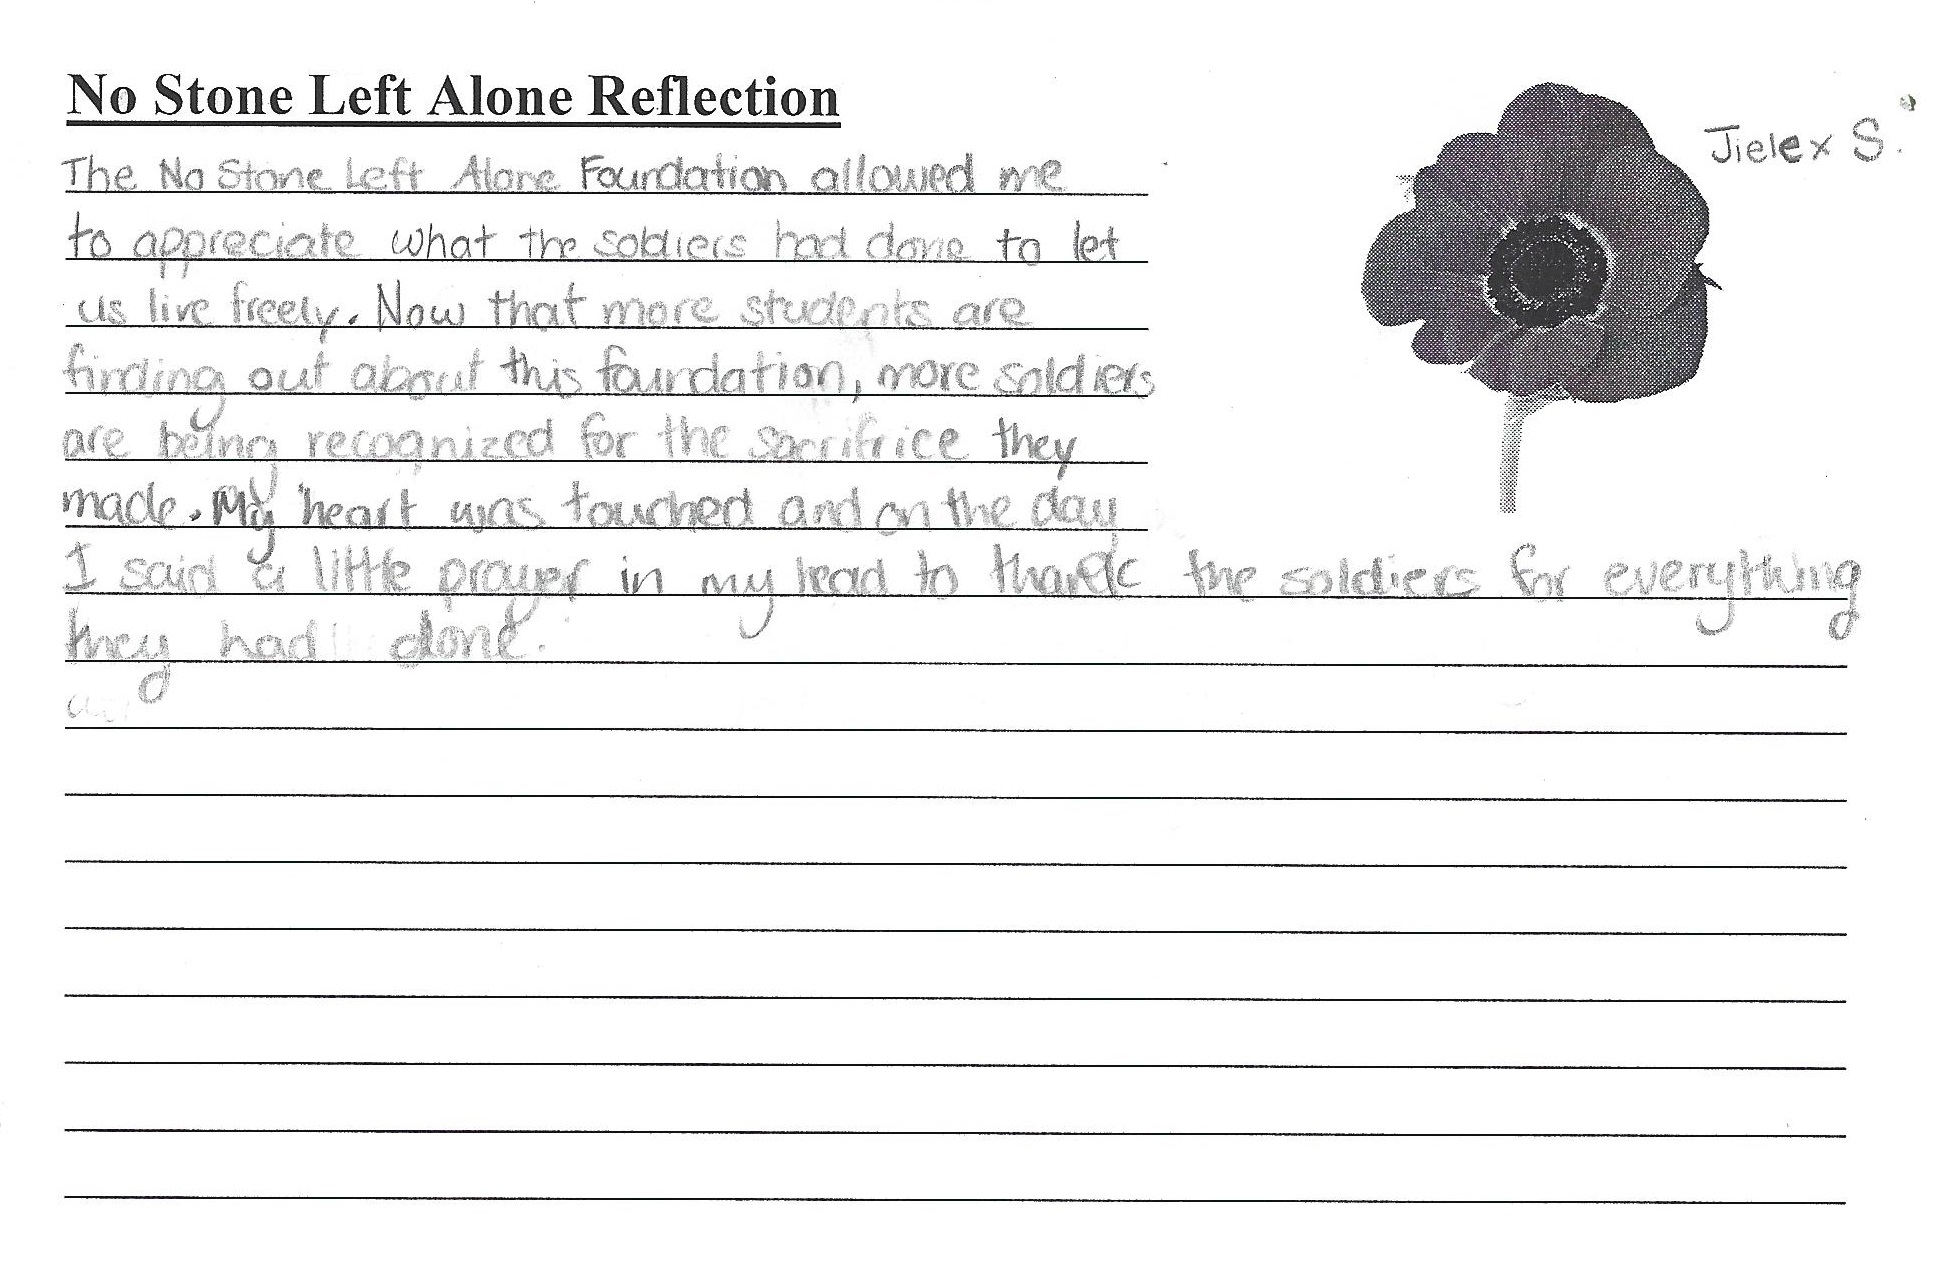 No Stone Left Alone Reflection
Jielex S.
The No Stone Left Alone Foundation allowed me
to appreciate what the soldiers had done to let
us live freely. Now that more students are
finding out about this foundation, more soldiers
are being recognized for the sacrifrice they
made. My heart was touched and on the day
I said a little prayer in my head to thank the soldiers for everything
they had done.